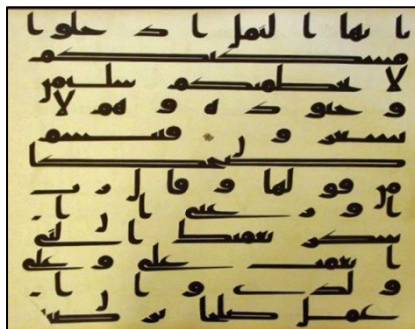 يا يها النمل ادخلوا
مسكنكم
لا يحطمنكم سليمن
وجنوده وهم لا
يشعرون فتبسم
ضحكا
من قولها وقال رب
اوزعني ان ا
شكر نعمتك التي
انعمت علي وعلى
ولدي وان ا
عمل صلحا ترضيه